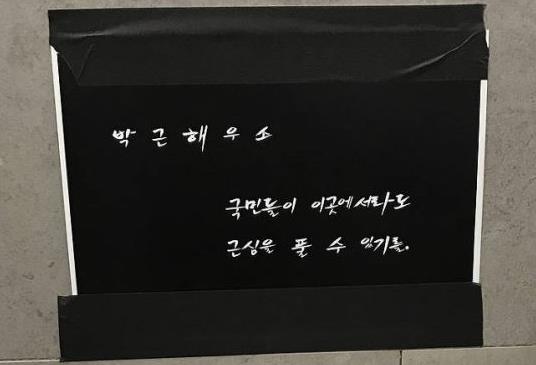 박근해우소
국민들이 이곳에서라도
근심을 풀 수 있기를.